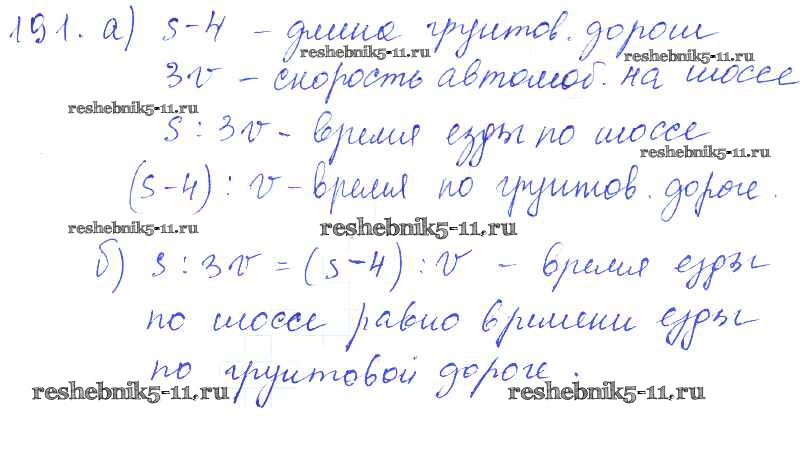 191. а) s-4 - длина грунтов. дороги
reshebnik5-11.ru reshebnik5-11.ru
3v - скорость автомоб. на шоссе
reshebnik5-11.ru
s : 3v - время езды по шоссе
reshebnik5-11.ru
(s-4) : v - время по грунтов. дороге.
reshebnik5-11.ru reshebnik5-11.ru
б) s : 3v = (s-4) : v - время езды
по шоссе равно времени езды
по грунтовой дороге.
reshebnik5-11.ru reshebnik5-11.ru